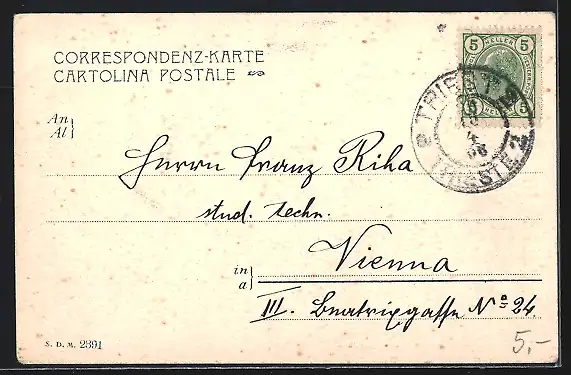 CORRESPONDENZ-KARTE
CARTOLINA POSTALE
5 HELLER 5
5 HELLER 5
TRIEST 2
4
06
TRIESTE 2
An
Al
Herrn Franz Riha
stud. techn.
in
a
Vienna
III. Beatrixgasse No 24
S. D. M. 2891
5,-